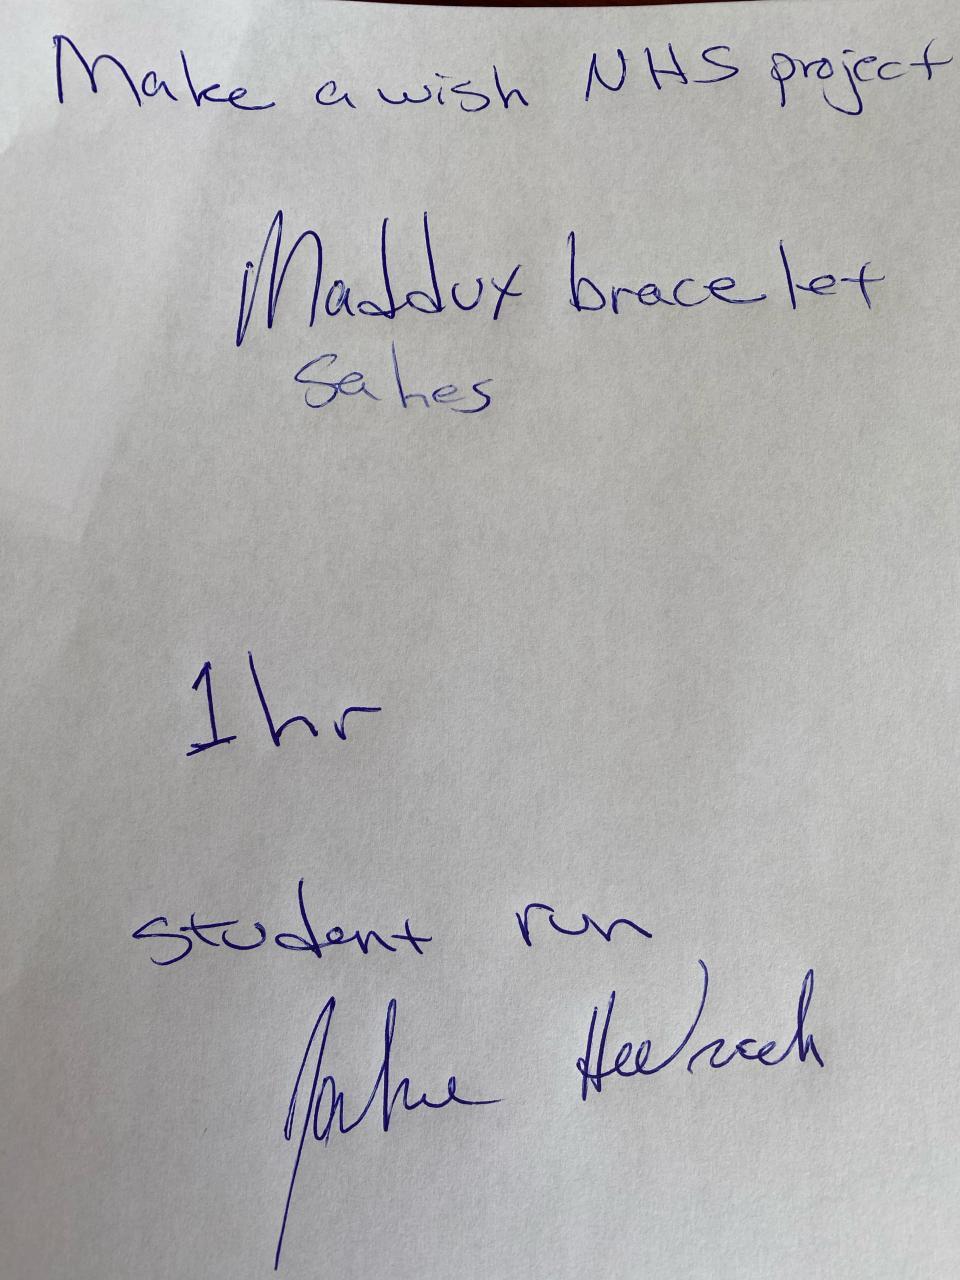 Make a wish NHS project
Maddux bracelet
Sales
1 hr
student run